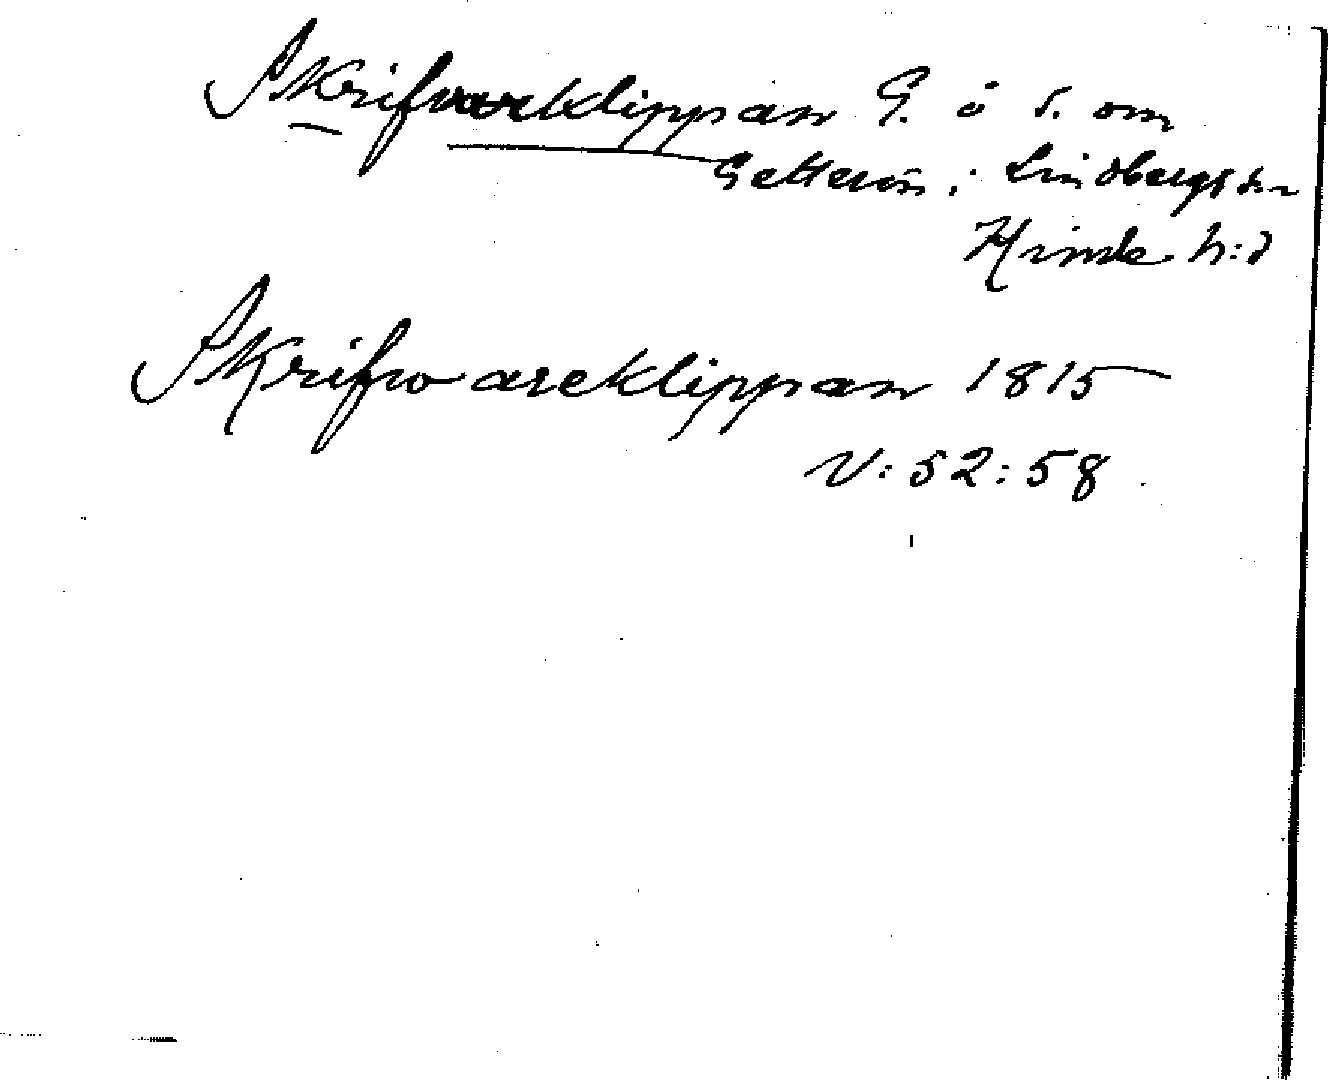 Skrifvareklippan G. ö S. om
Getterön i Lindbergs sn
Himle h:d
Skrifwareklippan 1815
V:52:58